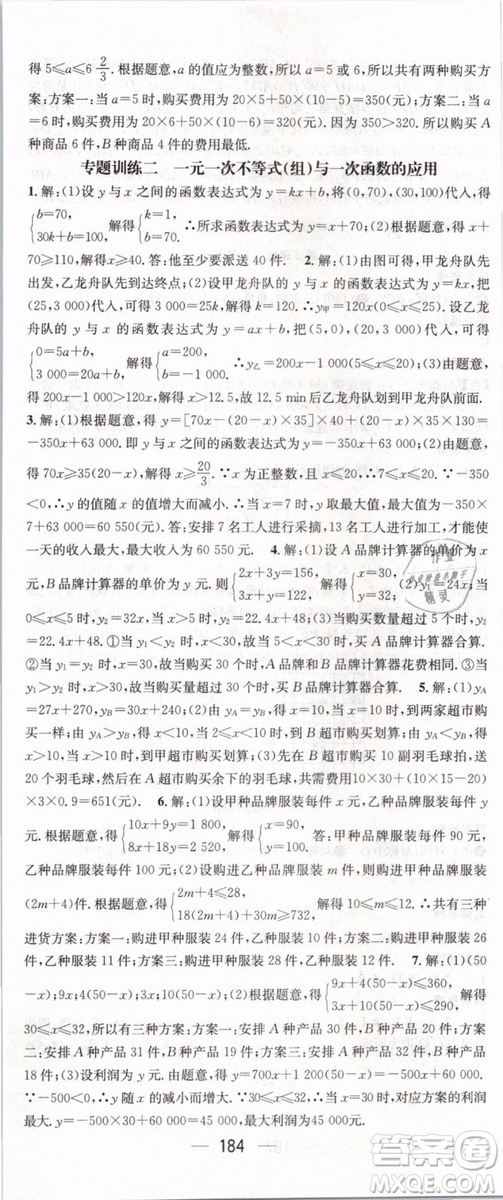 得 5≤a≤6 2/3. 根据题意,a 的值应为整数,所以 a=5 或 6,所以共有两种购买方
案:方案一:当 a=5 时,购买费用为 20×5+50×(10-5)=350(元);方案二:当 a
=6 时,购买费用为 20×6+50×(10-6)=320(元). 因为 350>320,所以购买 A
种商品 6 件,B 种商品 4 件的费用最低.
专题训练二 一元一次不等式(组)与一次函数的应用
1. 解:(1)设 y 与 x 之间的函数表达式为 y=kx+b,将(0,70),(30,100)代入,得
{b=70, 30k+b=100, 解得{k=1, b=70. ∴所求函数表达式为 y=x+70;(2)根据题意得 x+
70≥110,解得 x≥40. 答:他至少要派送 40 件. 2. 解:(1)由图可得,甲龙舟队先
出发,乙龙舟队先到达终点;(2)设甲龙舟队的 y 与 x 的函数表达式为 y=kx,把
(25,3 000)代入,可得 3 000=25k,解得 k=120. ∴y甲=120x(0≤x≤25). 设乙龙
舟队的 y 与 x 的函数表达式为 y=ax+b,把(5,0),(20,3 000)代入,可得
{0=5a+b, 3 000=20a+b, 解得{a=200, b=-1 000. ∴y乙=200x-1 000(5≤x≤20);(3)由题意,
可得 200x-1 000>120x,解得 x>12.5,故 12.5 min后乙龙舟队划到甲龙舟队前面.
3. 解:(1)根据题意得 y=[70x-(20-x)×35]×40+(20-x)×35×130=
-350x+63 000. 即 y 与 x 之间的函数表达式为 y=-350x+63 000;(2)根据题意得
70x≥35(20-x),解得 x≥20/3. ∵x 为正整数,且 x≤20,∴7≤x≤20. ∵-350
<0,∴y 的值随 x 的值增大而减小. ∴当 x=7 时,y 取最大值,最大值为-350×
7+63 000=60 550(元). 答:安排 7 名工人进行采摘,13 名工人进行加工,才能使
一天的收入最大,最大收入为 60 550元. 4. 解:(1)设 A 品牌计算器的单价为 x
元,B 品牌计算器的单价为 y 元,则{2x+3y=156, 3x+y=122, 解得{x=30, y=32; (2)y₁=24x;当
0≤x≤5 时,y₂=32x,当 x>5 时,y₂=22.4x+48;(3)当购买数量超过 5 个时,
y₂=22.4x+48. ①当 y₁<y₂ 时,x<30,故当 x<30 时,购买 A 品牌计算器合算.
②当 y₁=y₂ 时,x=30,故当购买 30 个时,购买 A 品牌和 B 品牌计算器花费相同. ③当
y₁>y₂ 时,x>30,故当购买数量超过 30 个时,购买 B 品牌计算器合算. 5. 解:(1)
yA=27x+270,yB=30x+240;(2)当 yA=yB 时,得 x=10,∴到两家超市购买
一样划算,当 yA>yB 时,得 x<10,∴到 B 超市购买划算;当 yA<yB 时,得 x>
10,∴到甲超市购买划算;(3)先选择 B 超市购买 10 副羽毛球拍,送
20 个羽毛球,然后在 A 超市购买余下的羽毛球,共需费用10×30+(10×15-20)
×3×0.9=651(元). 6. 解:(1)设甲种品牌服装每件 x 元,乙种品牌服装每件 y
元,根据题意得{10x+9y=1 800, 8x+18y=2 520, 解得{x=90, y=100. 答:甲种品牌服装每件 90 元,
乙种品牌服装每件 100 元;(2)设购进乙种品牌服装 m 件,则购进甲种品牌服装
(2m+4)件. 根据题意得{2m+4≤28, 18(2m+4)+30m≥732, 解得 10≤m≤12. ∴共有三种
进货方案:方案一:购进甲种服装 24 件,乙种服装 10 件;方案二:购进甲种服装 26
件,乙种服装 11 件;方案三:购进甲种服装 28 件,乙种服装 12 件. 7. 解:(1)(50
-x);9x;4(50-x);3x;10(50-x);(2)根据题意得{9x+4(50-x)≤360, 3x+10(50-x)≤290, 解得
30≤x≤32,所以有三种方案:方案一:安排 A 种产品30 件,B 种产品20 件;方案
二:安排 A 种产品 31 件,B 种产品 19 件;方案三:安排 A 种产品 32 件,B 种产品 18
件;(3)设利润为 y 元,由题意,得 y=700x+1 200(50-x),即 y=-500x+
60 000. ∵-500<0,30≤x≤32,∴y 的值随 x 的增大而减小. ∴方案一的利润
最大. -500×30+60 000=45 000,最大利润为45 000元.
184